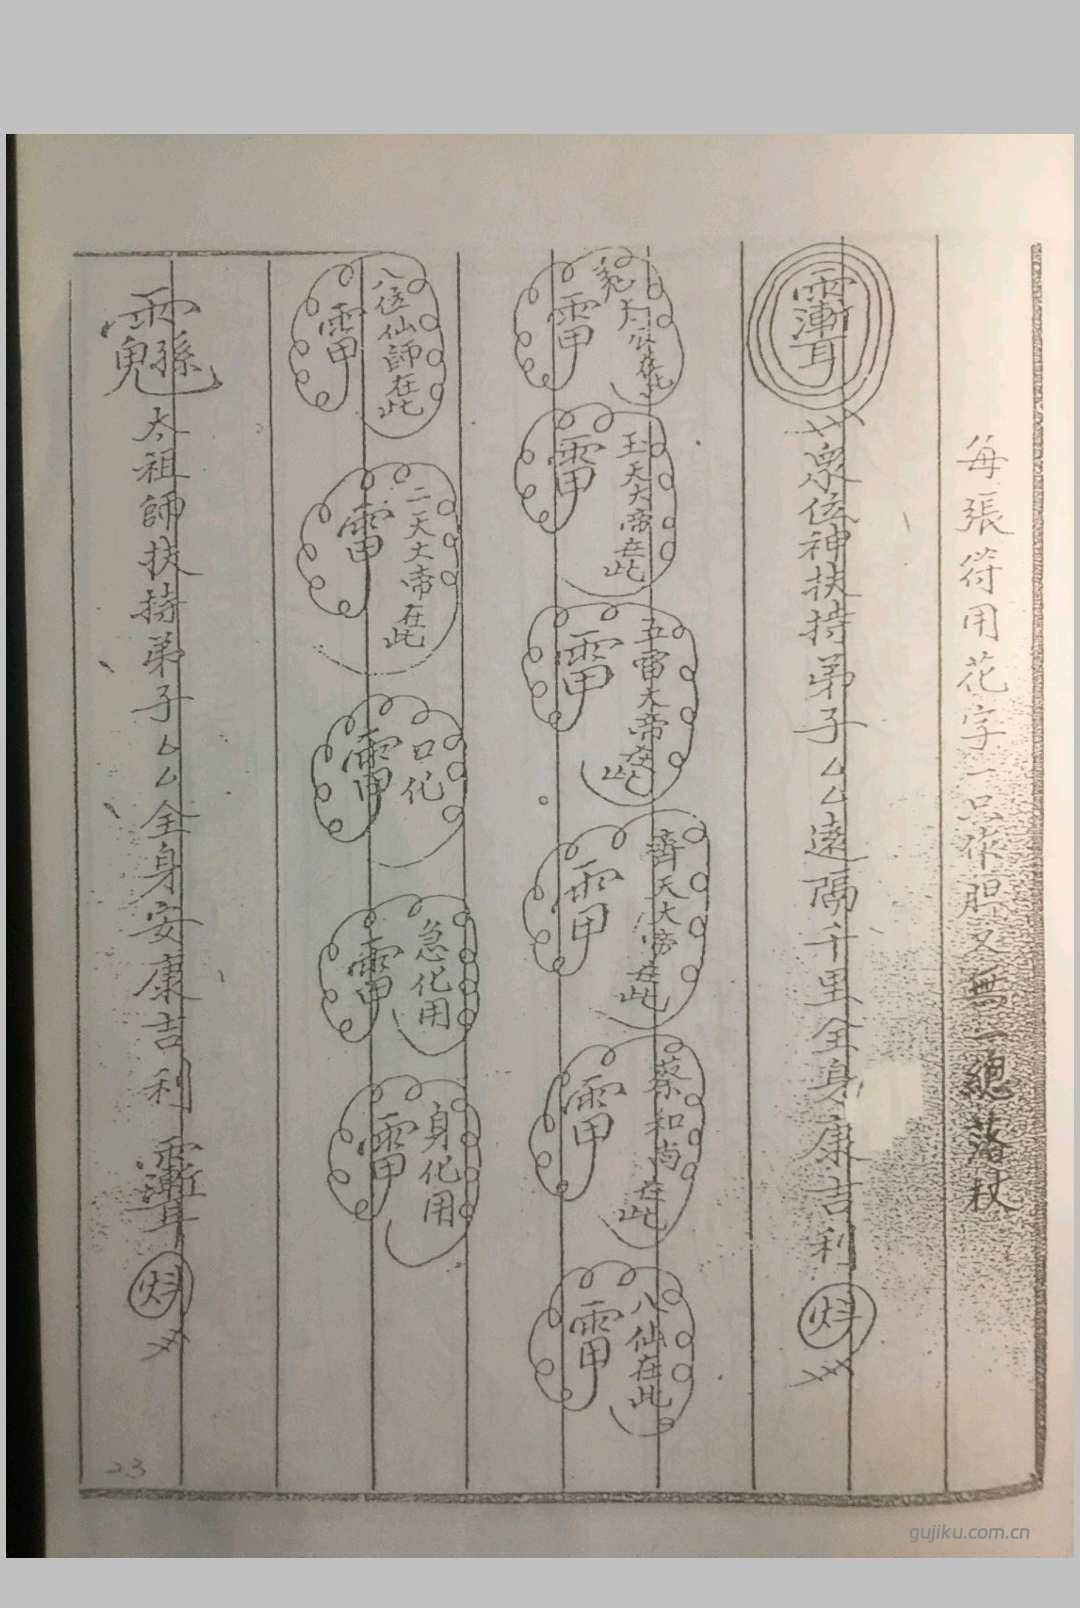 每張符用花字一只作胆又無一總落杖
衆位神扶持弟子厶厶遠隔千里全身康吉利
公在此
玉天大帝在此
五雷大帝在此
齊天大帝在此
蔡和尚在此
八仙在此
八位仙師在此
二天大帝在此
口化
急化用
身化用
太祖師扶持弟子厶厶全身安康吉利
23
gujiku.com.cn